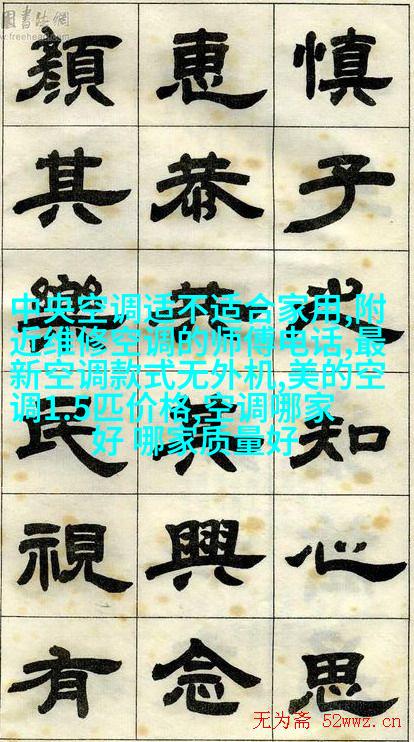 書法網
慎子知心思
惠恭興念
顏其樂民視有
中央空调适不适合家用,附
近维修空调的师傅电话,最
新空调款式无外机,美的空
调1.5匹价格,空调哪家
好 哪家质量好
无为斋 52wwz.cn